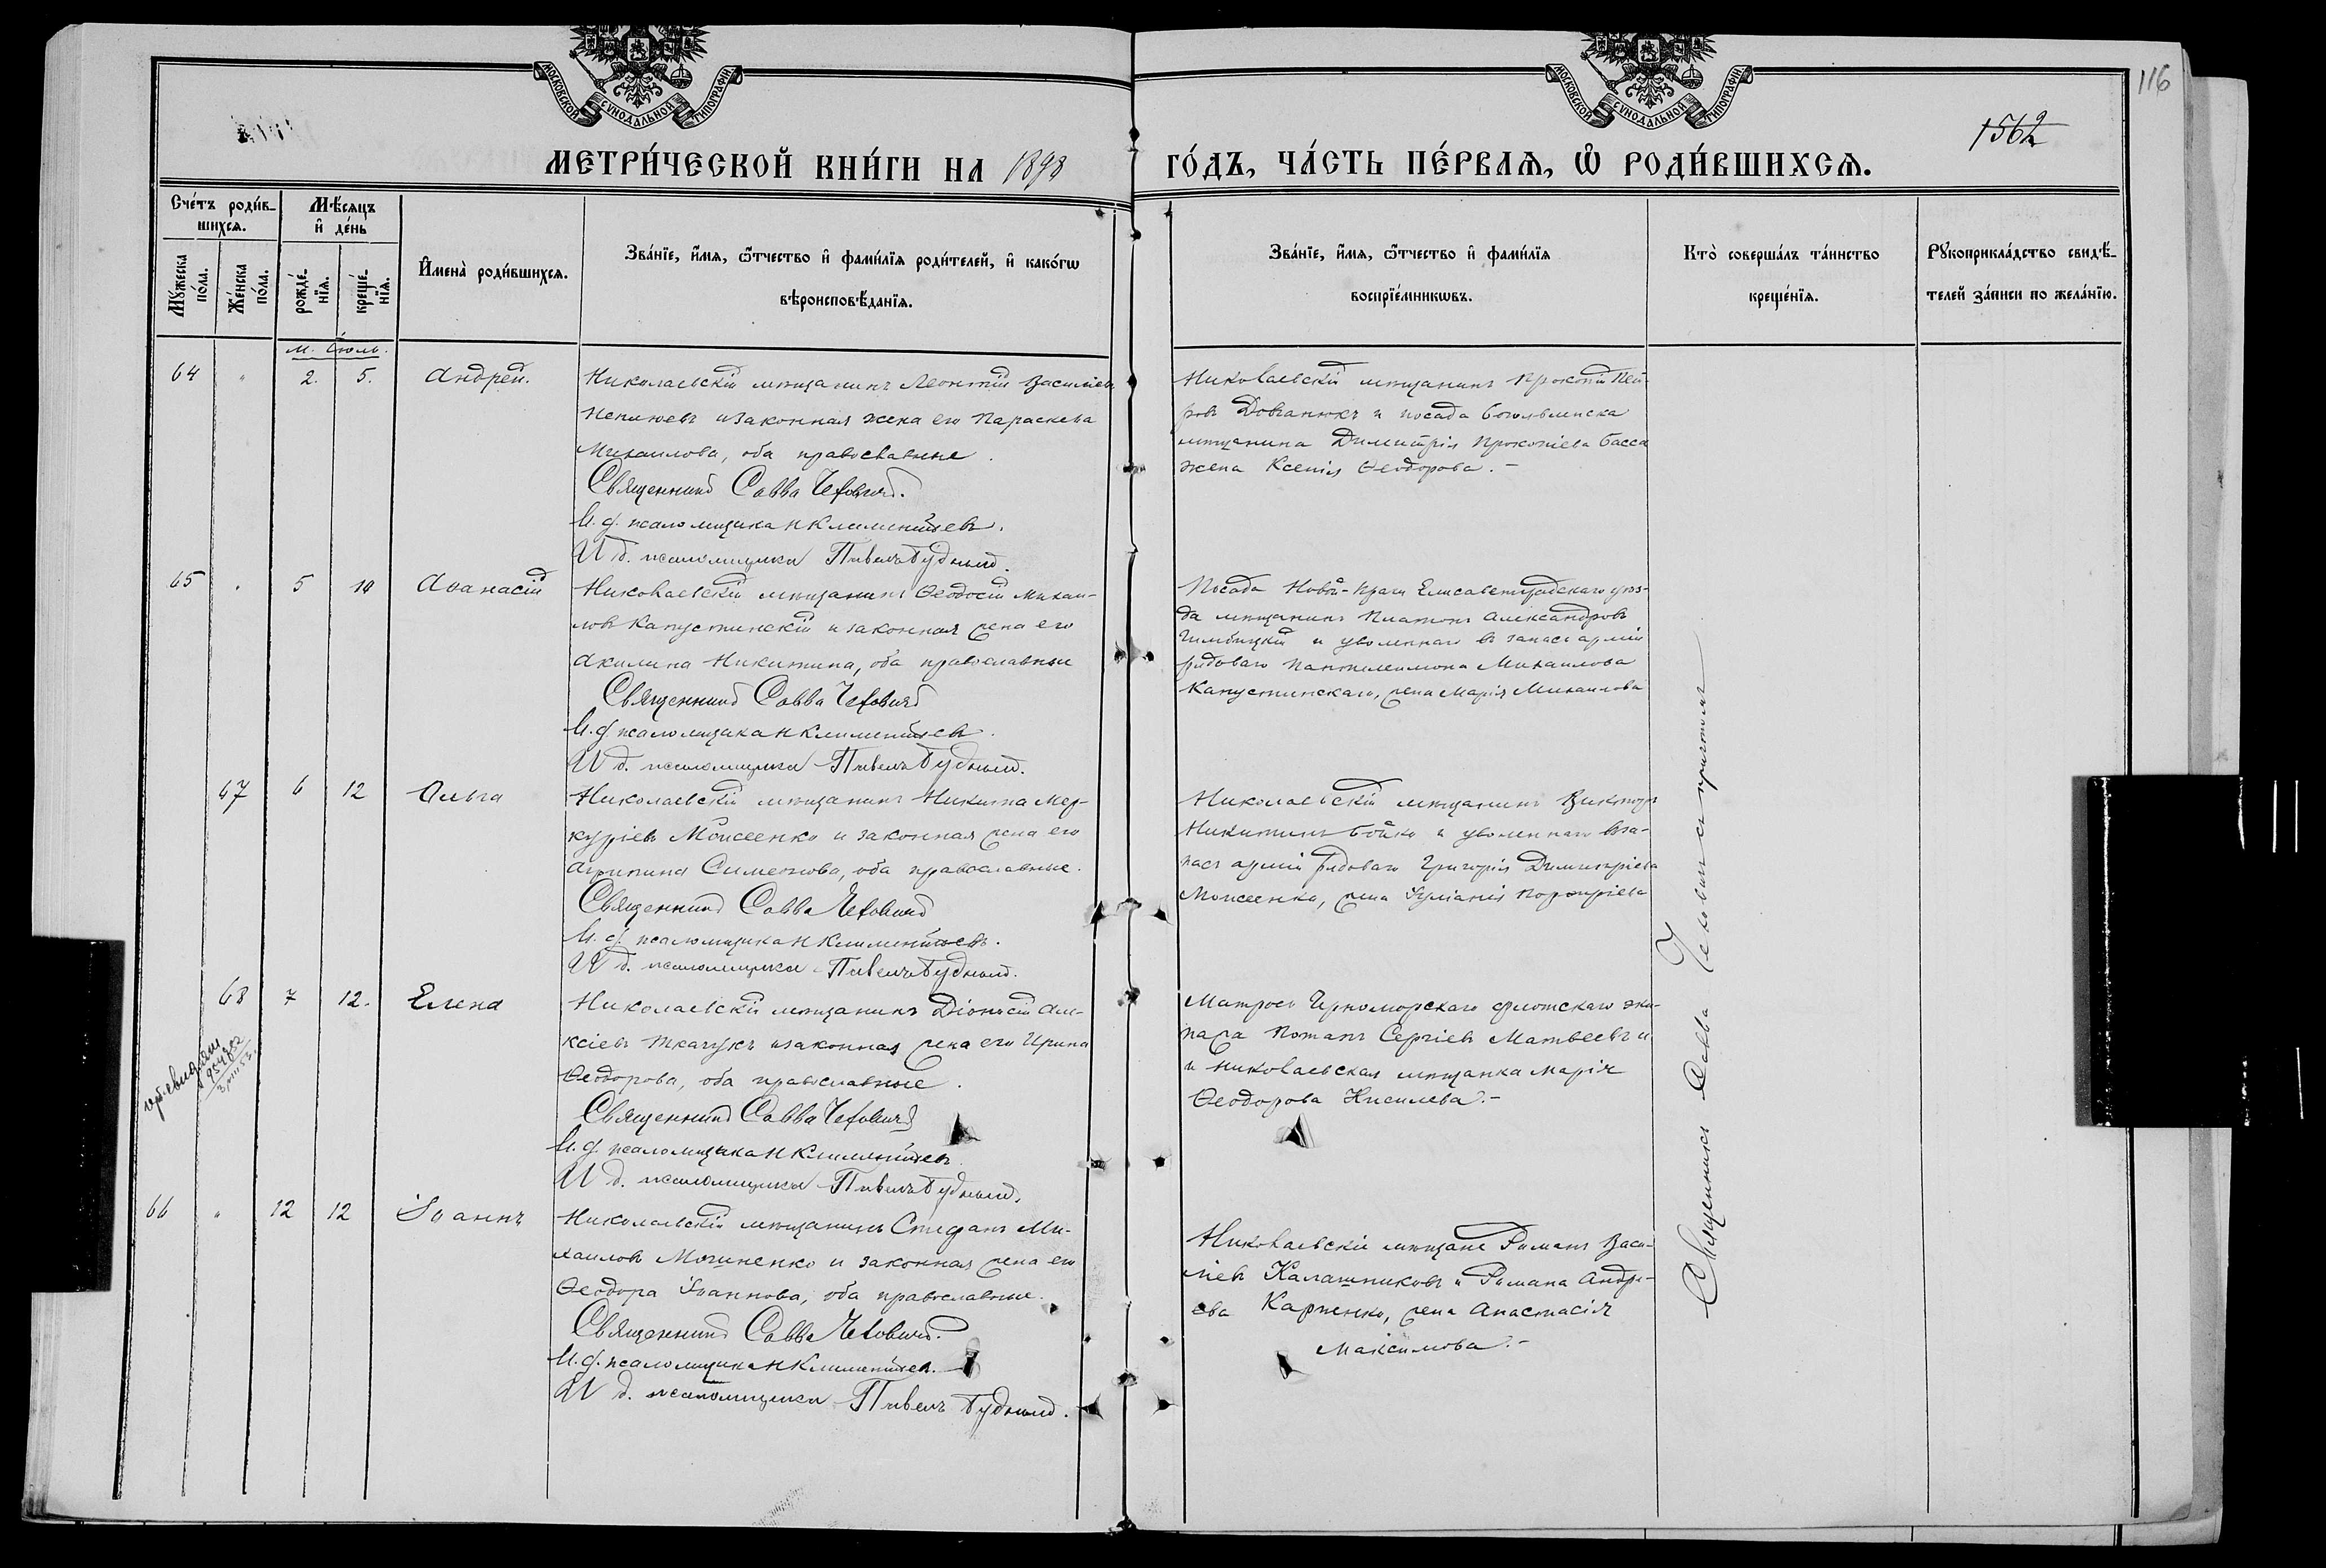 116
1562
МОСКОВСКОЙ СѴНОДАЛЬНОЙ ТИПОГРАФІИ
МОСКОВСКОЙ СѴНОДАЛЬНОЙ ТИПОГРАФІИ
МЕТРИ́ЧЕСКОЙ КНИ́ГИ НА 1898 ГО́ДЪ, ЧА́СТЬ ПЕ́РВАѦ, Ѡ҆ РОДИ́ВШИХСѦ.
Сче́тъ роди́в-
шихсѧ.
Мѣ́сѧцъ
и҆ де́нь
Мꙋ́жеска
по́ла.
Же́нска
по́ла.
рожде́-
нїѧ.
креще́-
нїѧ.
И҆мена̀ роди́вшихсѧ.
Зва́нїе, и҆́мѧ, ѻ҆́тчество и҆ фами́лїѧ роди́телей, и҆ како́гѡ
вѣроисповѣ́данїѧ.
Зва́нїе, и҆́мѧ, ѻ҆́тчество и҆ фами́лїѧ
воспрїе́мникѡвъ.
Кто̀ соверша́лъ та́инство
креще́нїѧ.
Рꙋкоприкла́дство свидѣ́-
телей за́писи по жела́нїю.
М. Іюль.
64 " 2. 5. Андрей.
Николаевскій мѣщанинъ Леонтій Василіев
Непиюевъ и законная жена его Параскева
Михаилова, оба православные.
Священникъ Савва Чехович.
И. д. псаломщика Н Климентьевъ.
И д. псаломщика Павелъ Будный.
Николаевскій мѣщанинъ Прокопій Пет-
ровъ Довганюкъ и посада
мѣщанина Димитрія Прокопіева Басса
жена Ксенія Ѳеодорова. -
65 " 5 10 Аѳанасій
Николаевскій мѣщанинъ Ѳеодосій Михаи-
ловъ Капустинскій и законная жена его
Акилина Никитина, оба православные
Священникъ Савва Чехович
И. д. псаломщика Н Климентьевъ.
И д. псаломщика Павелъ Будный.
Посада Новой-Праги Елисаветградскаго уѣз-
да мѣщанинъ Платонъ Александровъ
и уволеннаго въ запасъ арміи
рядоваго Пантелеимона Михаилова
Капустинскаго, жена Марія Михаилова
67 6 12 Ольга
Николаевскій мѣщанинъ Никита Мер-
куріевъ Моисеенко и законная жена его
Агрипина Симеонова, оба православные.
Священникъ Савва Чехович
И. д. псаломщика Н Климентьевъ.
И д. псаломщика Павелъ Будный.
Николаевскій мѣщанинъ Викторъ
Никитинъ Бойко и уволеннаго въ за-
пасъ арміи рядоваго Григорія Димитріева
Моисеенко, жена Іуліанія Порфиріева
68 7 12. Елена
Николаевскій мѣщанинъ Діонисій Але-
ксіевъ Ткачукъ и законная жена его Ирина
Ѳеодорова, оба православные.
Священникъ Савва Чехович
И. д. псаломщика Н Климентьевъ.
И д. псаломщика Павелъ Будный.
Матросъ Черноморскаго флотскаго эки-
пажа Потапъ Сергіевъ Матвеевъ и
и Николаевская мѣщанка Марія
Ѳеодорова Киселева. -
66 " 12 12 Іоаннъ
Николаевскій мѣщанинъ Стефанъ Ми-
хаиловъ Могиненко и законная жена его
Ѳеодора Іоаннова, оба православные.
Священникъ Савва Чехович.
И. д. псаломщика Н Климентьевъ.
И д. псаломщика Павелъ Будный.
Николаевскіе мѣщане Романъ Васи-
ліевъ Калашниковъ и Романа Андре-
ева Карпенко, жена Анастасія
Максимова. -
Священникъ Савва Чеховичъ съ причтомъ